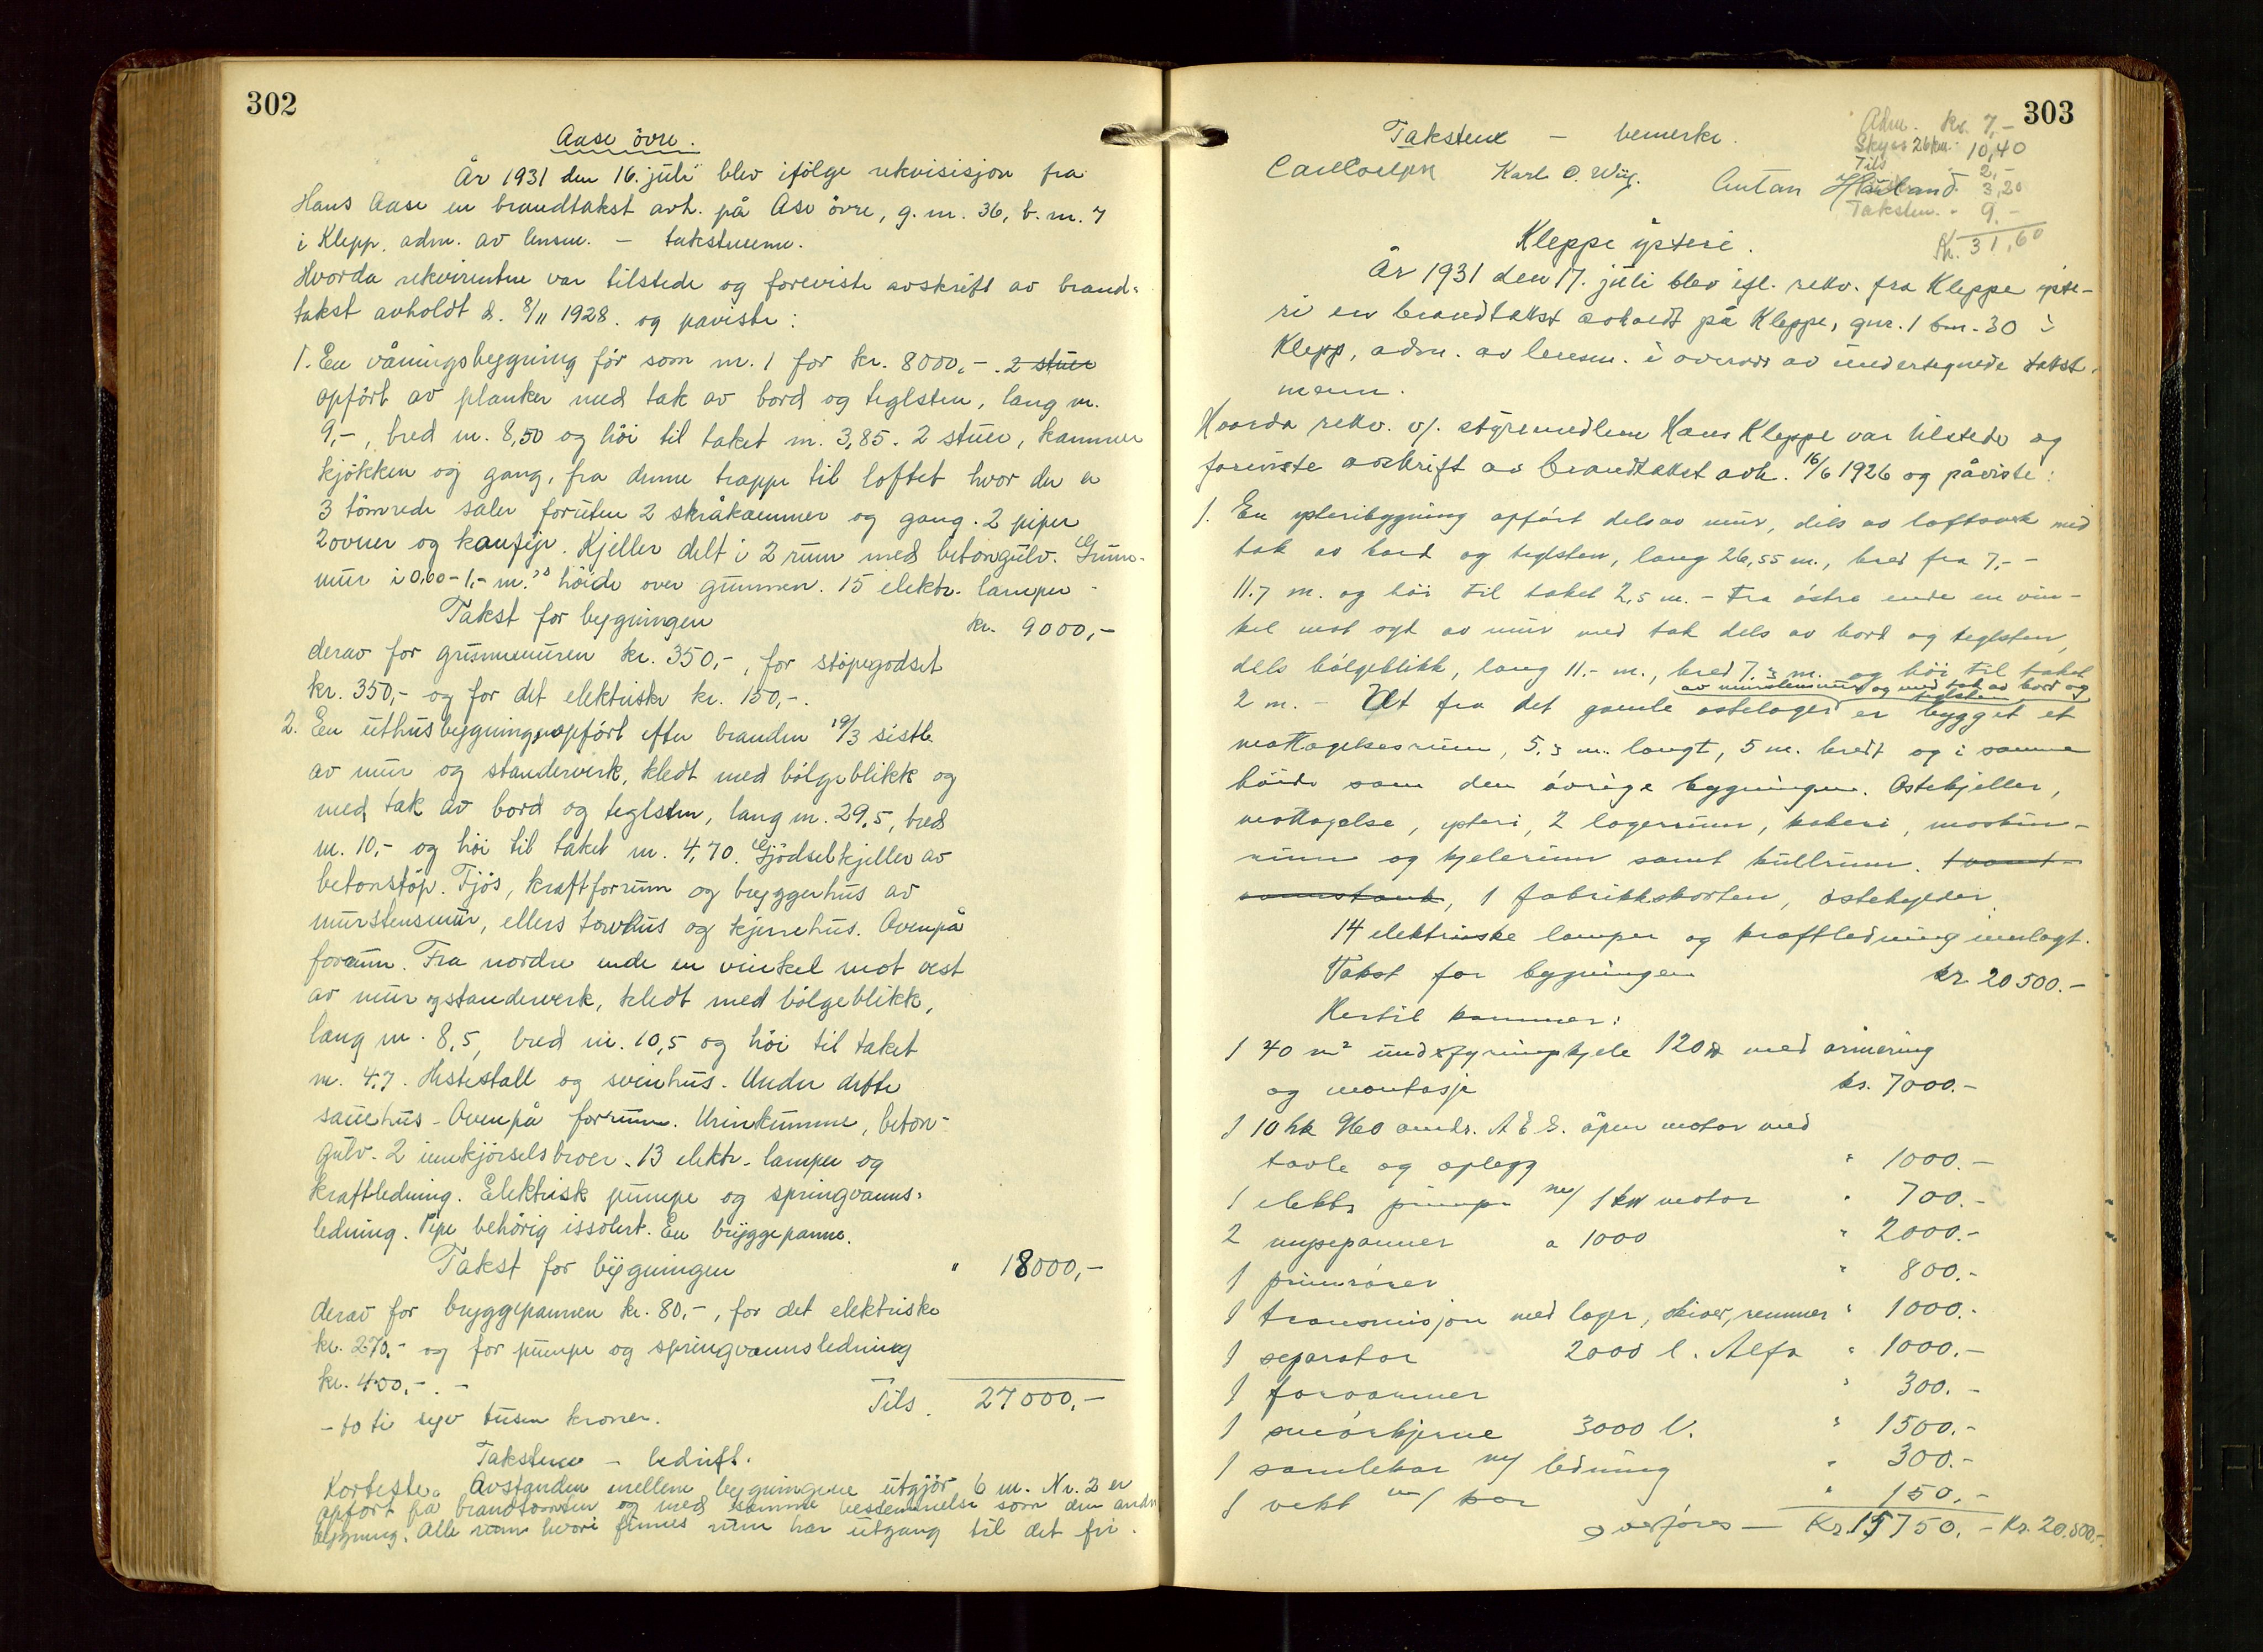 302
Aase övre.
År 1931 den 16. juli blev ifölge rekvisisjon fra
Hans Aase en brandtakst avh. på Åse övre, g.m. 36, b.m. 7
i Klepp, adm. av lensm. – takstmenn.
Hvorda rekvirenten var tilstede og foreviste avskrift av brand-
takst avholdt d. 8/11 1928. og paviste:
1. En våningsbygning för som nr. 1 for kr. 8000,-. 2 stuer
opfört av planker med tak av bord og teglsten, lang m.
9,-, bred m. 8,50 og höi til taket m. 3,85. 2 stuer, kammer
kjökken og gang, fra denne trappe til loftet hvor der er
3 tömrede saler foruten 2 skråkammer og gang. 2 piper
2 ovner og komfyr. Kjeller delt i 2 rum med betongulv. Grun-
mur i 0,60-1,- m.s höide over grunnen. 15 elektr. lamper -
Takst for bygningen kr. 9000,-
derav for grunnmuren kr. 350,-, for stöpegodset
kr. 350,- og for det elektriske kr. 150,-.
2. En uthusbygning opfört efter branden 19/3 sistl.
av mur og standerverk, kledt med bölgeblikk og
med tak av bord og teglsten, lang m. 29,5, bred
m. 10,- og höi til taket m. 4,70. Gjödselkjeller av
betonstöp. Fjös, kraftforrum og bryggerhus av
murstensmur, ellers torvhus og kjerrehus. Ovenpå
forrum. Fra nordre ende en vinkel mot vest
av mur og standerverk, kledt med bölgeblikk,
lang m. 8,5, bred m. 10,5 og höi til taket
m. 4,7. Hestestall og svinhus. Under dette
sauehus. Ovenpå forrum. Urinkumme, beton-
gulv. 2 innkjörselsbroer. 13 elektr. lamper og
kraftledning. Elektrisk pumpe og springvanns-
ledning. Pipe behörig issolert. En bryggepanne.
Takst for bygningen " 18000,-
derav for bryggepannen kr. 80,-, for det elektriske
kr. 270,- og for pumpe og springvannsledning
kr. 400,-. -
Tils. 27000,-
- to ti syv tusen kroner.
Takstene - bedrift.
Korteste. Avstanden mellem bygningene utgjör 6 m. Nr. 2 er
opfört på brandtomten og med samme bestemmelse som den andre
bygning. Alle rum hvori finnes rum har utgang til det fri.
303
Takstene – bemerke.
Adm. kr. 7,-
Skyss 26 km. 10,40
Tils 2,-
3,20
Takstm. " 9.-
Kr. 31,60
Karl O. Wiig. Antan Hauland
Kleppe ysteri.
År 1931 den 17. juli blev ifl. rekv. fra Kleppe yste-
ri en brandtakst avholdt på Kleppe, gnr. 1 bnr. 30 i
Klepp, adm. av lensm. i overvær av undertegnede takst-
menn.
Hvorda rekv. v/. styremedlem Hans Kleppe var tilstede og
foreviste avskrift av brandtakst avh. 16/6 1926 og påviste:
1. En ysteribygning opfört dels av mur, dels av loftverk med
tak av bord og teglsten, lang 26,55 m., bred fra 7,- -
11.7 m. og höi til taket 2,5 m. - Fra östre ende en vin-
kel mot syd av mur med tak dels av bord og teglsten,
dels bölgeblikk, lang 11.- m., bred 7.3 m. og höi til taket
2 m. - Ut fra det gamle ostelager av murstensmur og med tak av bord og teglsten er bygget et
mottagelsesrum, 5.3 m. langt, 5 m. bredt og i samme
höide som den övrige bygningen. Ostekjeller,
mottagelse, ysteri, 2 lagerrum, kokeri, maskin-
rum og kjelerum samt kullrum. 1 vant-
vannstank, 1 fabrikkskorsten, ostehylder.
14 elektriske lamper og kraftledning innlagt.
Takst for bygningen kr 20500.-
Hertil kommer:
1 40 m² underfyringskjele 120 med armering
og montasje kr. 7000.-
1 10 hk 960 omdr. A E G. åpen motor med
tavle og oplegg " 1000.-
1 elektr. pumpe m/ 1 kw motor " 700.-
2 mysepanner a 1000 " 2000.-
1 primrörer " 800.-
1 transmisjon med lager, skiver, remmer " 1000.-
1 separator 2000 l. Alfa " 1000.-
1 forvarmer " 300.-
1 smörkjerne 3000 l. " 1500.-
1 samlekar m/ ledning " 300.-
1 vekt m/ kar " 150.-
overföres — Kr. 15750.- Kr. 20.500.-